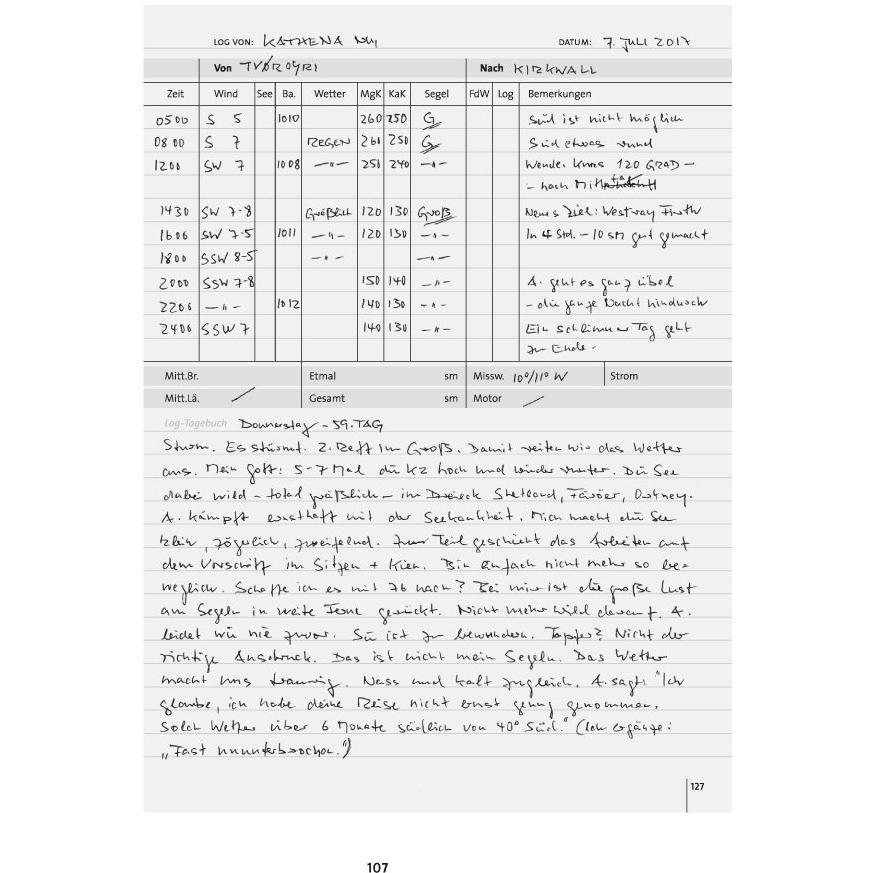 LOG VON: KATHENA NUI DATUM: 7. JULI 2017
Von TVØROYRI Nach KIRKWALL
Zeit Wind See Ba. Wetter MgK KaK Segel FdW Log Bemerkungen
0500 S 5 1010 260 250 G Süd ist nicht möglich
0800 S 7 REGEN 260 250 G Süd etwas rund
1200 SW 7 1008 –"– 250 240 –"– Wende. Kurs 120 GRAD –
– nach Mitta
1430 SW 7-8 Gräßlich 120 130 Groß Neues Ziel: Westray Firth
1606 SW 7-5 1011 –"– 120 130 –"– In 4 Std. – 10 sm gut gemacht
1800 SSW 8-5 –"– –"–
2000 SSW 7-8 150 140 –"– A. geht es ganz übel
2206 –"– 1012 140 130 –"– – die ganze Nacht hindurch
2400 SSW 7 140 130 –"– Ein schlimmer Tag geht
zu Ende.
Mitt.Br. Etmal sm Missw. 10°/11° W Strom
Mitt.Lä. Gesamt sm Motor
Log-Tagebuch Donnerstag – 59. TAG
Sturm. Es stürmt. 2. Reff im Groß. Damit reiten wir das Wetter
aus. Mein Gott: 5-7 Mal die K2 hoch und wieder runter. Die See
dabei wild – total gräßlich – im Dreieck Shetland, Färöer, Orkney.
A. kämpft ernsthaft mit der Seekrankheit. Mich macht die See
klein, zögerlich, zweifelnd. Zum Teil geschieht das Arbeiten auf
dem Vorschiff im Sitzen + Knien. Bin einfach nicht mehr so be=
weglich. Schaffe ich es mit 76 noch? Bei mir ist die große Lust
am Segeln in weite Ferne gerückt. Nicht mehr wild darauf. A.
leidet wie nie zuvor. Sie ist zu bewundern. Tapfer? Nicht der
richtige Ausdruck. Das ist nicht mein Segeln. Das Wetter
macht uns traurig. Nass und kalt zugleich. A. sagt: "Ich
glaube, ich habe deine Reise nicht ernst genug genommen.
Solch Wetter über 6 Monate südlich von 40° Süd." (Ich ergänze:
„Fast ununterbrochen.")
127
107